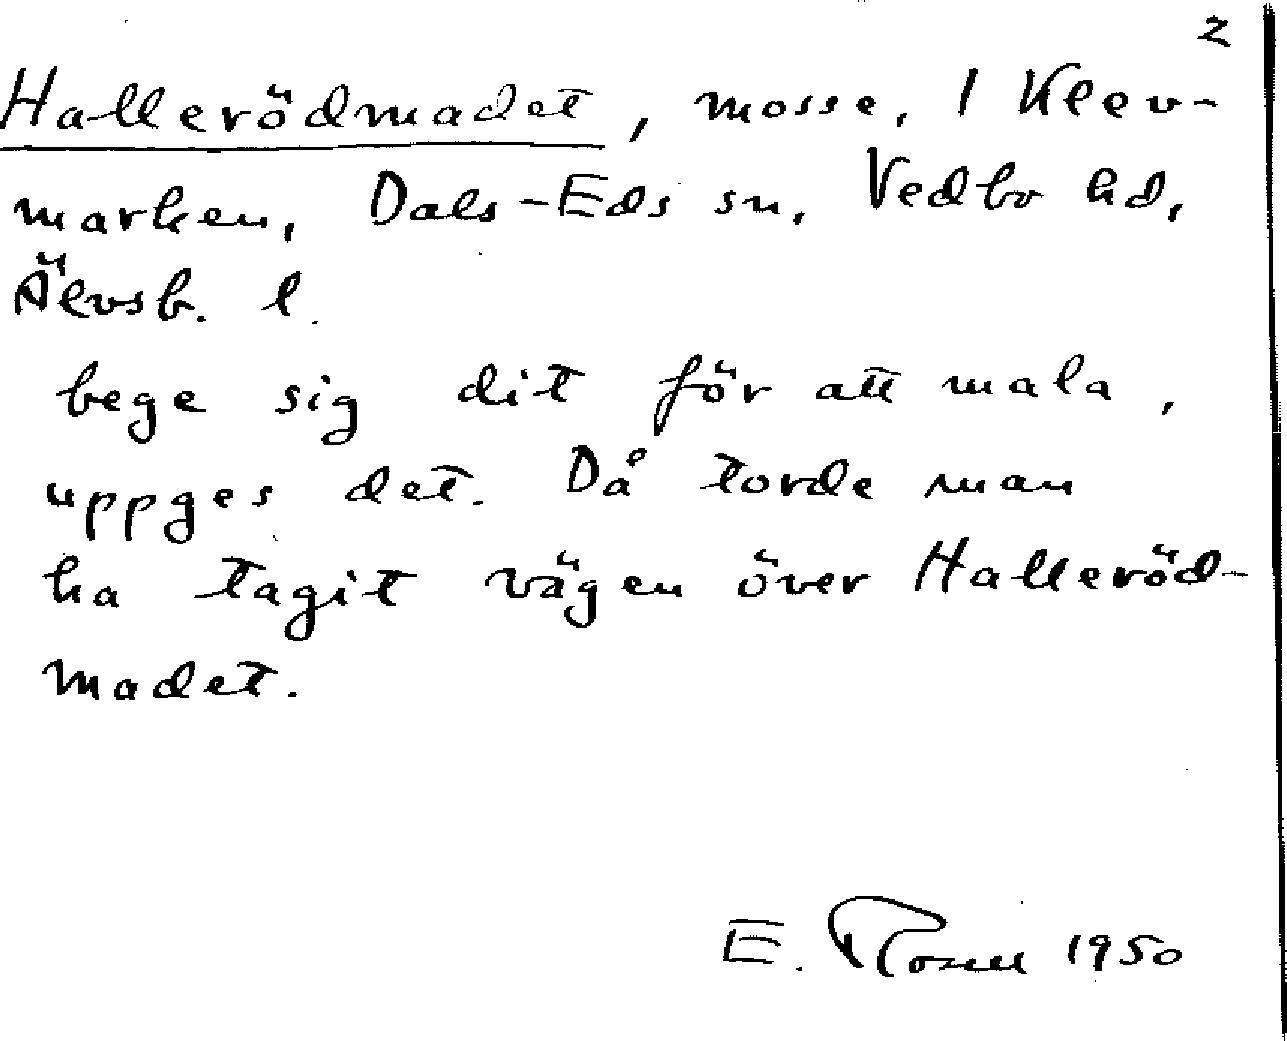 2
Hallerödmadet, mosse, 1 Klev-
marken, Dals-Eds sn, Vedbo hd,
Älvsb. l.
bege sig dit för att mala,
uppges det. Då torde man
ha tagit vägen över Halleröd-
madet.
E. Rosell 1950